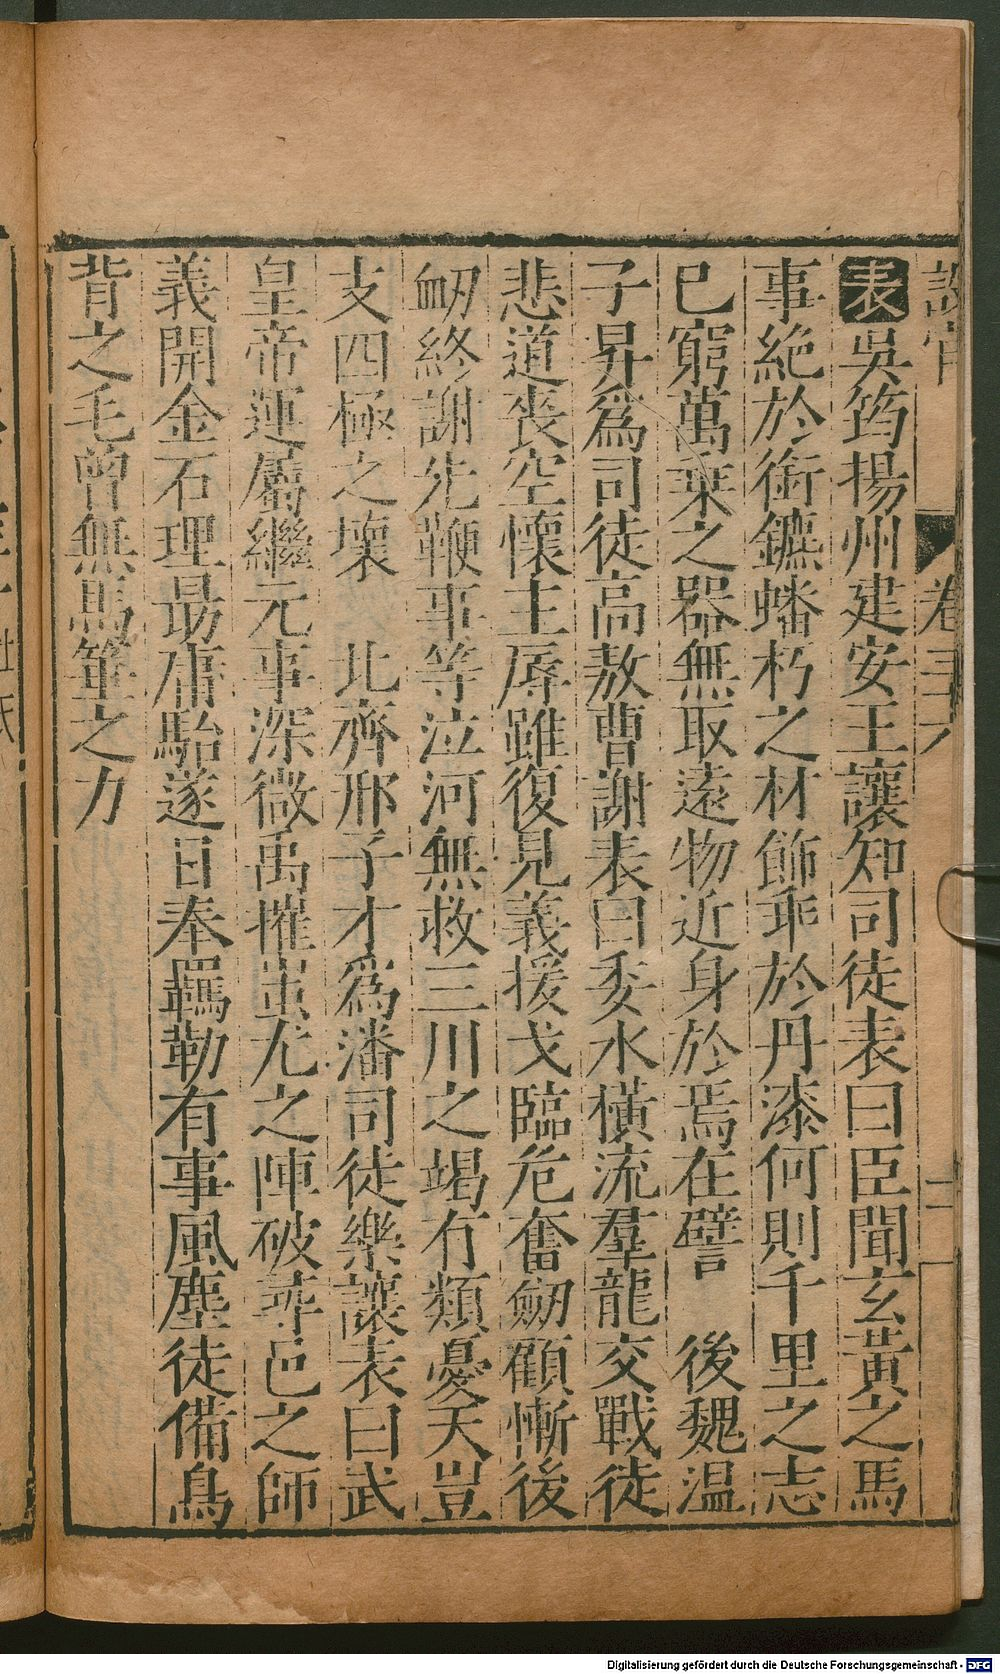 表吳筠揚州建安王讓知司徒表曰臣聞玄黃之馬
事絶於銜鑣蟠朽之材飾乖於丹漆何則千里之志
已窮萬乘之器無取遠物近身於焉在譬 後魏溫
子昇爲司徒高敖曹謝表曰委水橫流羣龍交戰徒
悲道喪空懷主辱雖復見義援戈臨危奮劒顧慚後
衂終謝先鞭事等泣河無救三川之竭有類憂天豈
支四極之壞 北齊邢子才爲潘司徒樂讓表曰武
皇帝運屬繼元事深微禹摧蚩尤之陣破尋邑之師
義開金石理勗庸駘遂日奉羈勒有事風塵徒備鳥
背之毛曾無馬箠之力
卷
二
Digitalisierung gefördert durch die Deutsche Forschungsgemeinschaft - DFG